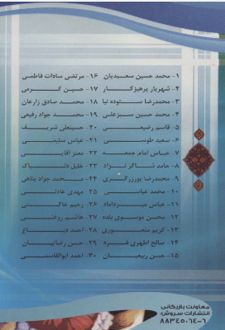 ۱- محمد حسین سعیدیان
۲- شهریار پرهیزگار
۳- محمدرضا ستوده نیا
۴- محمد حسین سبزعلی
۵- قاسم رضیعی
۶- سعید طوسی
۷- عباس امام جمعه
۸- حامد شاکر نژاد
۹- محمدرضا پورزرگری
۱۰- محمد عباسی
۱۱- عباس میرداماد
۱۲- محسن موسوی بلده
۱۳- کریم منصوری
۱۴- صالح اطهری فرد
۱۵- حسن ربیعیان
۱۶- مرتضی سادات فاطمی
۱۷- حسین کرمی
۱۸- محمد صادق زارعان
۱۹- محمد جواد رفیعی
۲۰- حسینعلی شریف
۲۱- عباس سلیمی
۲۲- معتز آقایی
۲۳- خلیل دلشاد
۲۴- محمد جواد پناهی
۲۵- مهدی عادلی
۲۶- رحیم خاکی
۲۷- هاشم روغنی
۲۸- احمد دباغ
۲۹- حسن رضاییان
۳۰- احمد ابوالقاسمی
معاونت بازرگانی
انتشارات سروش:
۸۸۳۴۵۰۶۴-۶